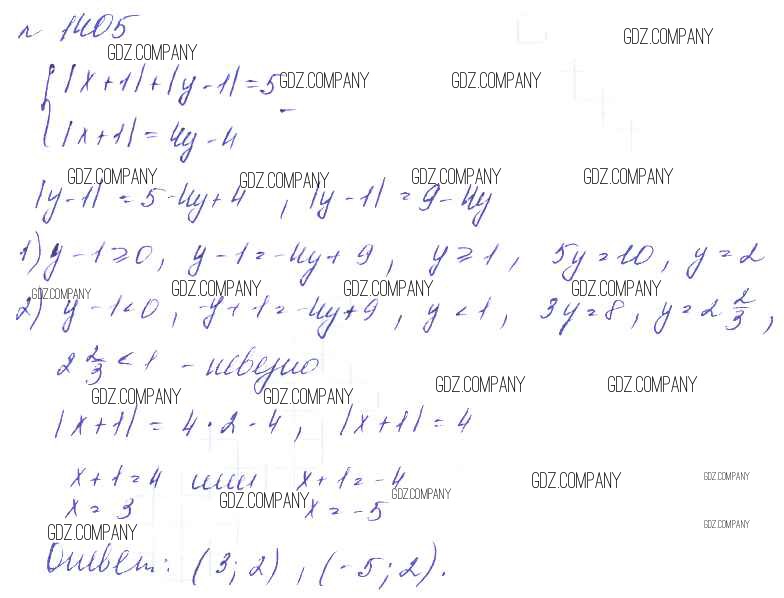 n 1405
GDZ.COMPANY GDZ.COMPANY
|x+1|+|y-1|=5 GDZ.COMPANY GDZ.COMPANY
|x+1|=4y-4
GDZ.COMPANY GDZ.COMPANY GDZ.COMPANY GDZ.COMPANY
|y-1|=5-4y+4, |y-1|=9-4y
1) y-1≥0, y-1=-4y+9, y≥1, 5y=10, y=2
GDZ.COMPANY GDZ.COMPANY GDZ.COMPANY GDZ.COMPANY
2) y-1<0, -y+1=-4y+9, y<1, 3y=8, y=2 2/3,
2 2/3<1 - неверно
GDZ.COMPANY GDZ.COMPANY GDZ.COMPANY GDZ.COMPANY
|x+1|=4·2-4, |x+1|=4
x+1=4 или x+1=-4 GDZ.COMPANY GDZ.COMPANY
x=3 GDZ.COMPANY x=-5 GDZ.COMPANY
GDZ.COMPANY GDZ.COMPANY
Ответ: (3;2), (-5;2).